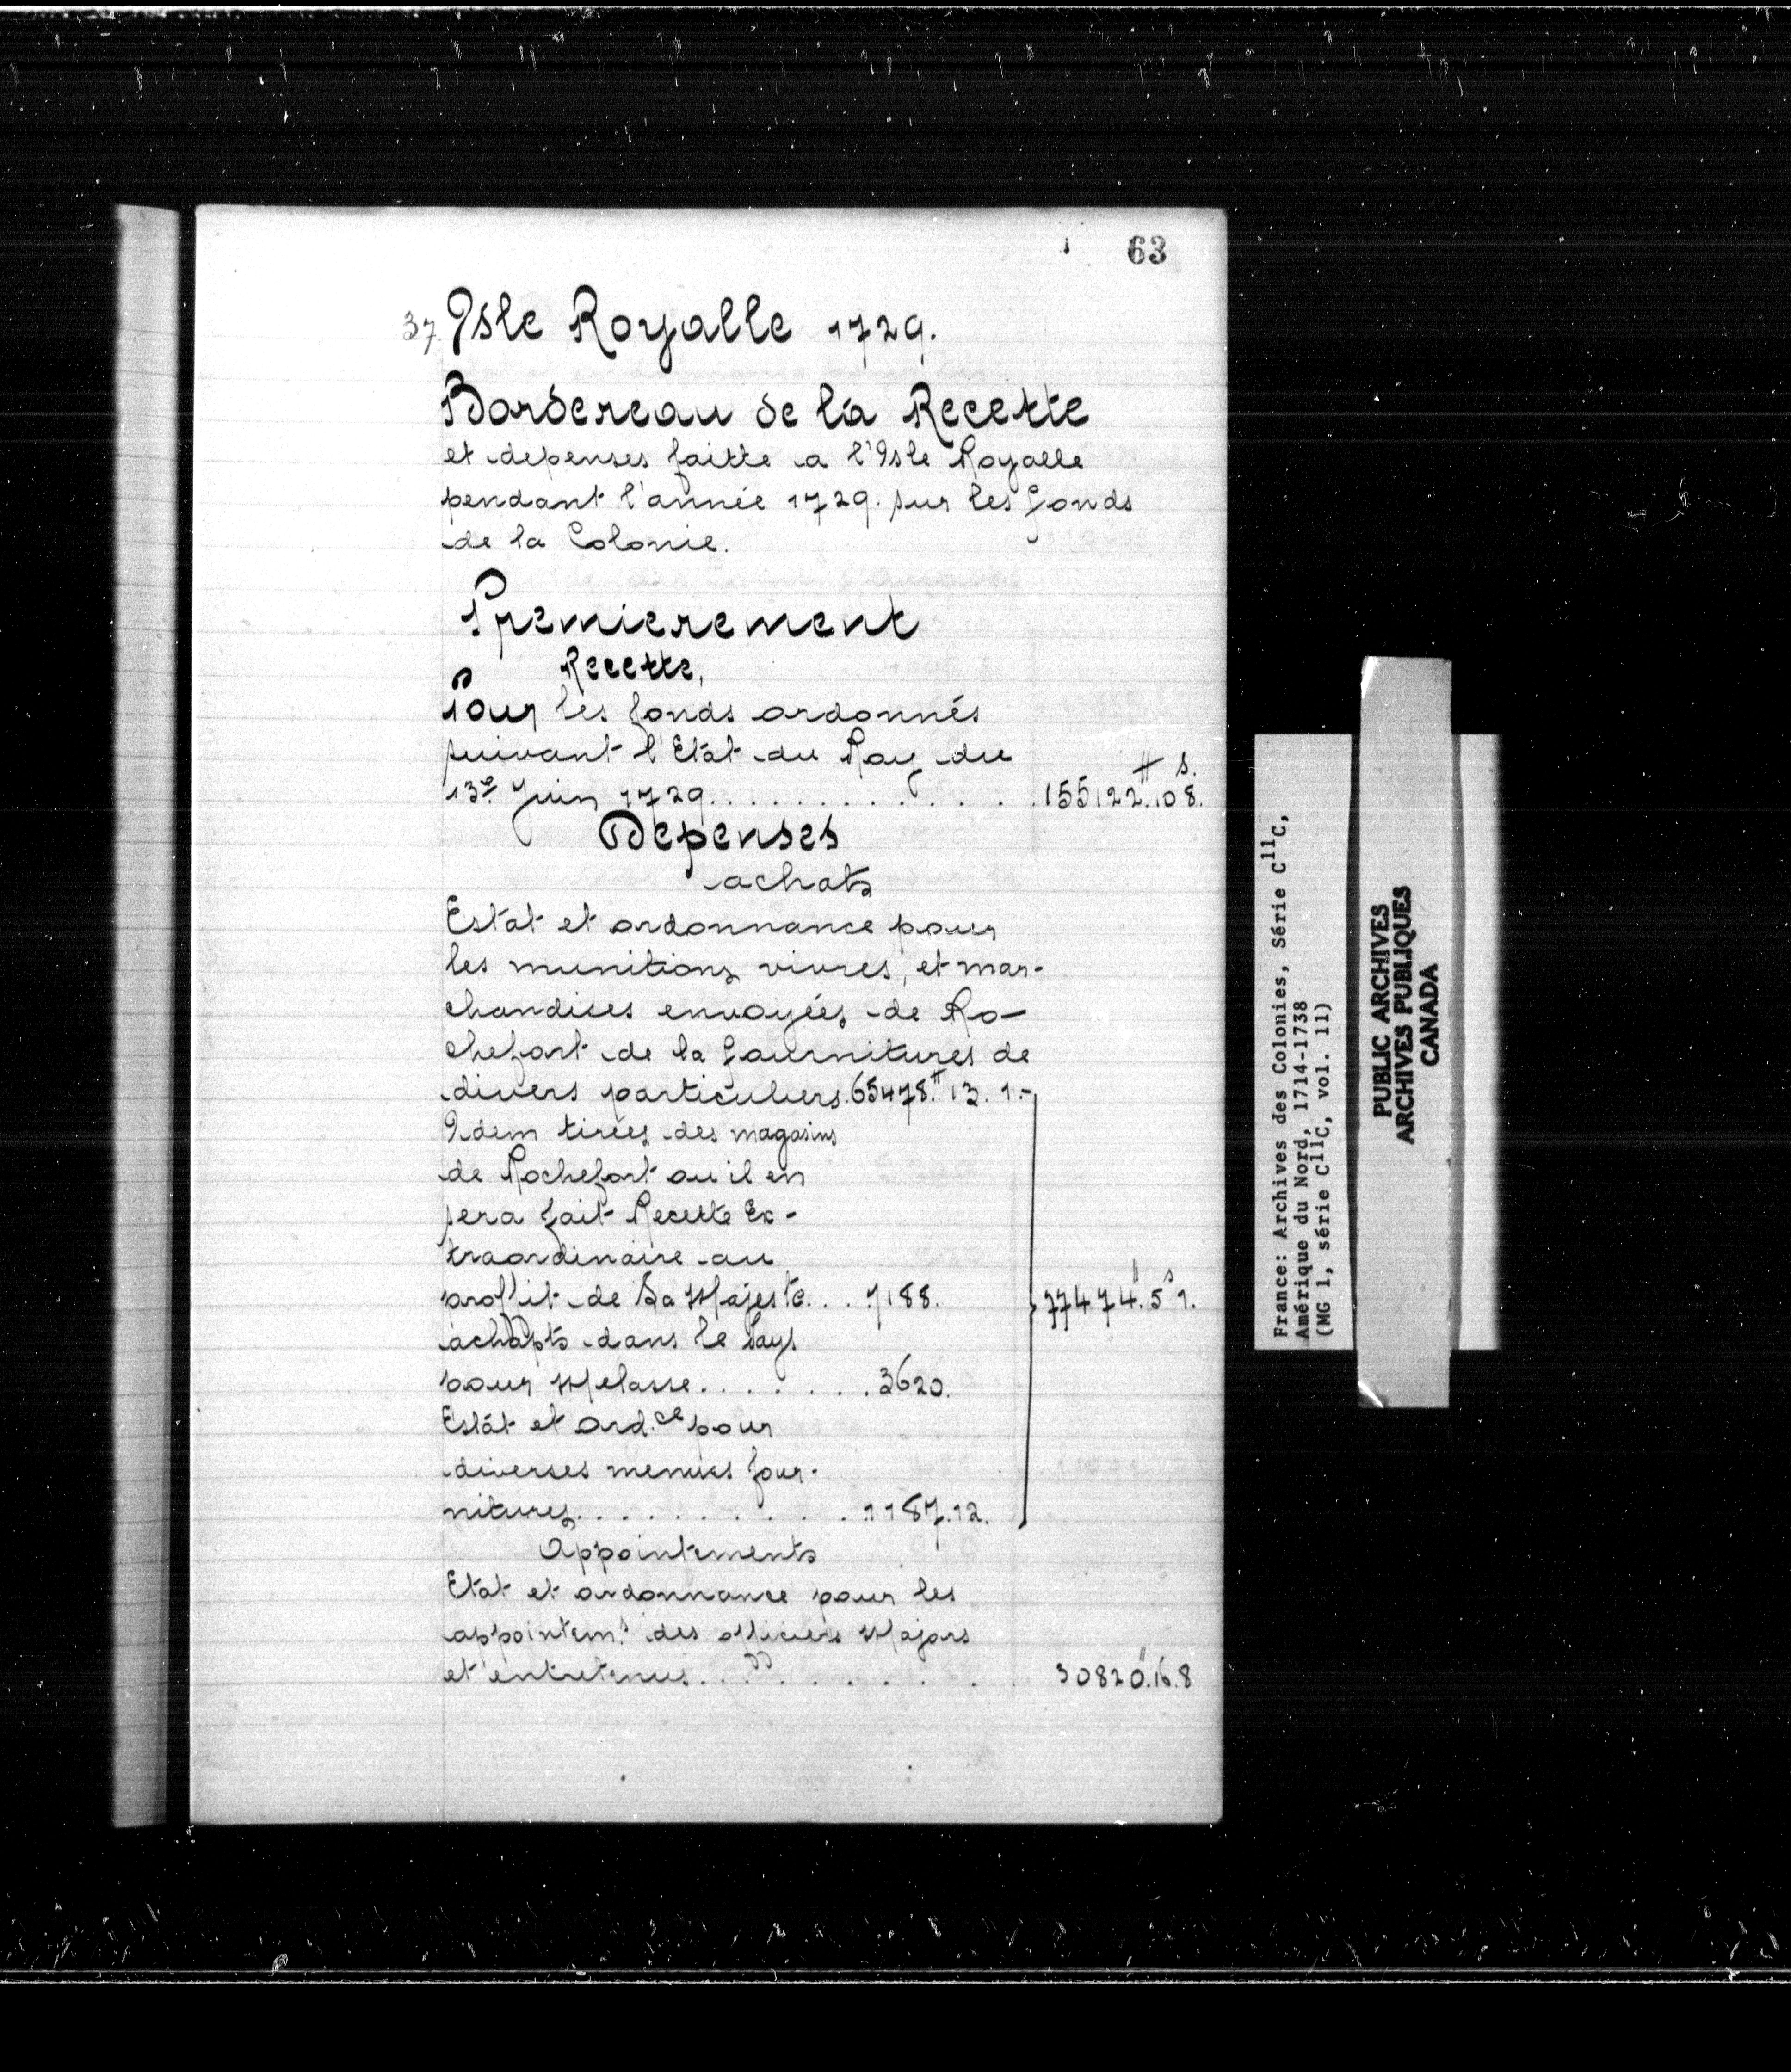 63
37. Isle Royalle 1729.
Bordereau de la Recette
et depenses faitte a l'Isle Royalle
pendant l'année 1729. sur les fonds
de la Colonie.
Premierement
Recette,
Pour les fonds ordonnés
suivant l'Etat du Roy du
13e Juin 1729............. 155122.# 10 s. 8.
Depenses
achats
Estat et ordonnance pour
les munitions vivres, et mar-
chandises envoyées de Ro-
chefort de la fournitures de
divers particuliers. 65478.# 13. 1.-
Idem tirées des magasins
de Rochefort ou il en
sera fait Recette Ex-
traordinaire au
proffit de Sa Majesté... 7188. 77474.# 5 s 1.
achapts dans le Pays
pour Melasse........ 3620.
Estat et ord.ce pour
diverses menues four-
nitures.......... 1187.12.
Appointements
Etat et ordonnance pour les
appointem.s des officiers Majors
et entretenus.......... 30820.# 16. 8
France: Archives des Colonies, Série C11C,
Amérique du Nord, 1714-1738
(MG 1, série C11C, vol. 11)
PUBLIC ARCHIVES
ARCHIVES PUBLIQUES
CANADA